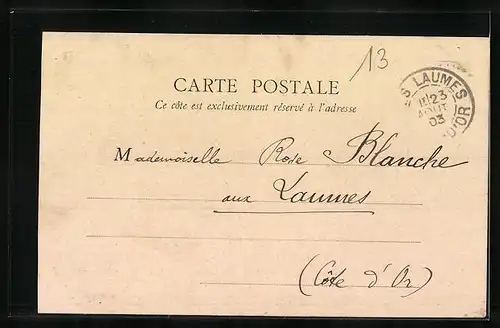 13
CARTE POSTALE
Ce côté est exclusivement réservé à l'adresse
LES LAUMES
23
AOUT
03
D'OR
Mademoiselle Rose Blanche
aux Laumes
(Côte d'Or)